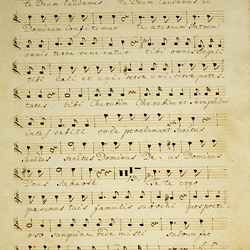 te Deum laudamus te Deum laudamus te
Dominum confitemur te aeternum Patrem
omnis terra veneratur tibi omnes Angeli
tibi Caeli et universa potes
tates tibi Cherubim Cherubim et Seraphim
voce proclamant Sanctus
Sanctus Sanctus Dominus Deus Dominus
Deus Sabaoth Te ergo
quaesumus tuis famulis subveni quos preti
oso Sanguine redemisti Salvum fac